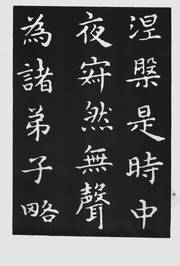 涅槃是時中
夜寂然無聲
為諸弟子略